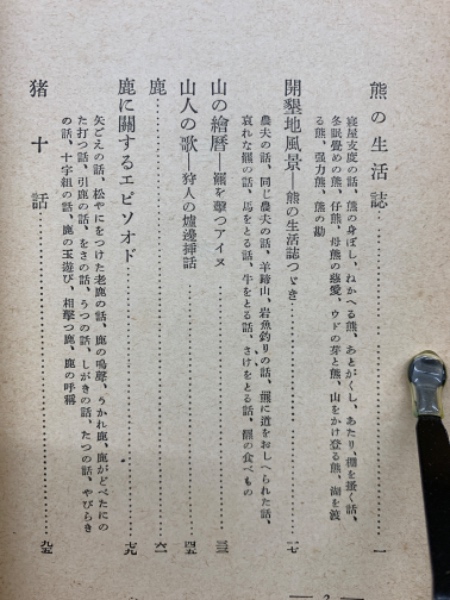 熊の生活誌……一
寢屋支度の話、熊の身ぼし、ねかへる熊、あとがくし、あたり、棚を搔く話、
冬眠覺めの熊、仔熊、母熊の慈愛、ウドの芽と熊、山をかけ登る熊、湖を渡
る熊、强力熊、熊の勘
開墾地風景―熊の生活誌つゞき……一七
農夫の話、同じ農夫の話、羊蹄山、岩魚釣りの話、羆に道をおしへられた話、
哀れな羆の話、馬をとる話、牛をとる話、さけをとる話、羆の食べもの
山の繪曆―羆を擊つアイヌ……三三
山人の歌―狩人の爐邊揷話……四五
鹿……六一
鹿に關するエピソオド……七九
矢ごえの話、松やにをつけた老鹿の話、鹿の鳴聲、うかれ鹿、鹿がどべたにの
た打つ話、引鹿の話、をさの話、うつの話、しがきの話、たつの話、やびらき
の話、十字組の話、鹿の玉遊び、相擊つ鹿、鹿の呼稱
猪十話……九五
2